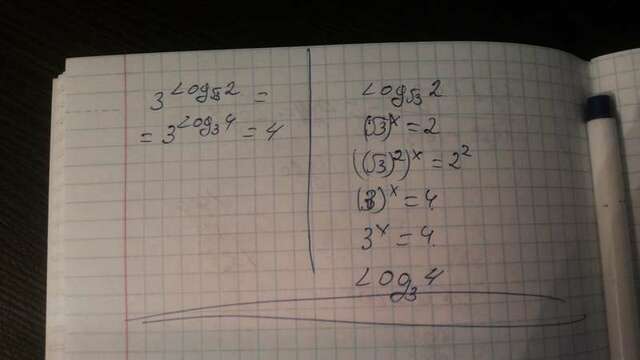 3^{Log_{√3}2} =
= 3^{Log_3 4} = 4
Log_{√3} 2
(√3)^x = 2
((√3)^2)^x = 2^2
(3)^x = 4
3^x = 4
Log_3 4